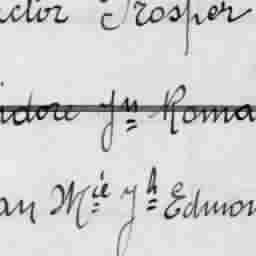 ictor Prosper
idore Jn Roma
an Mie Jh Edmon